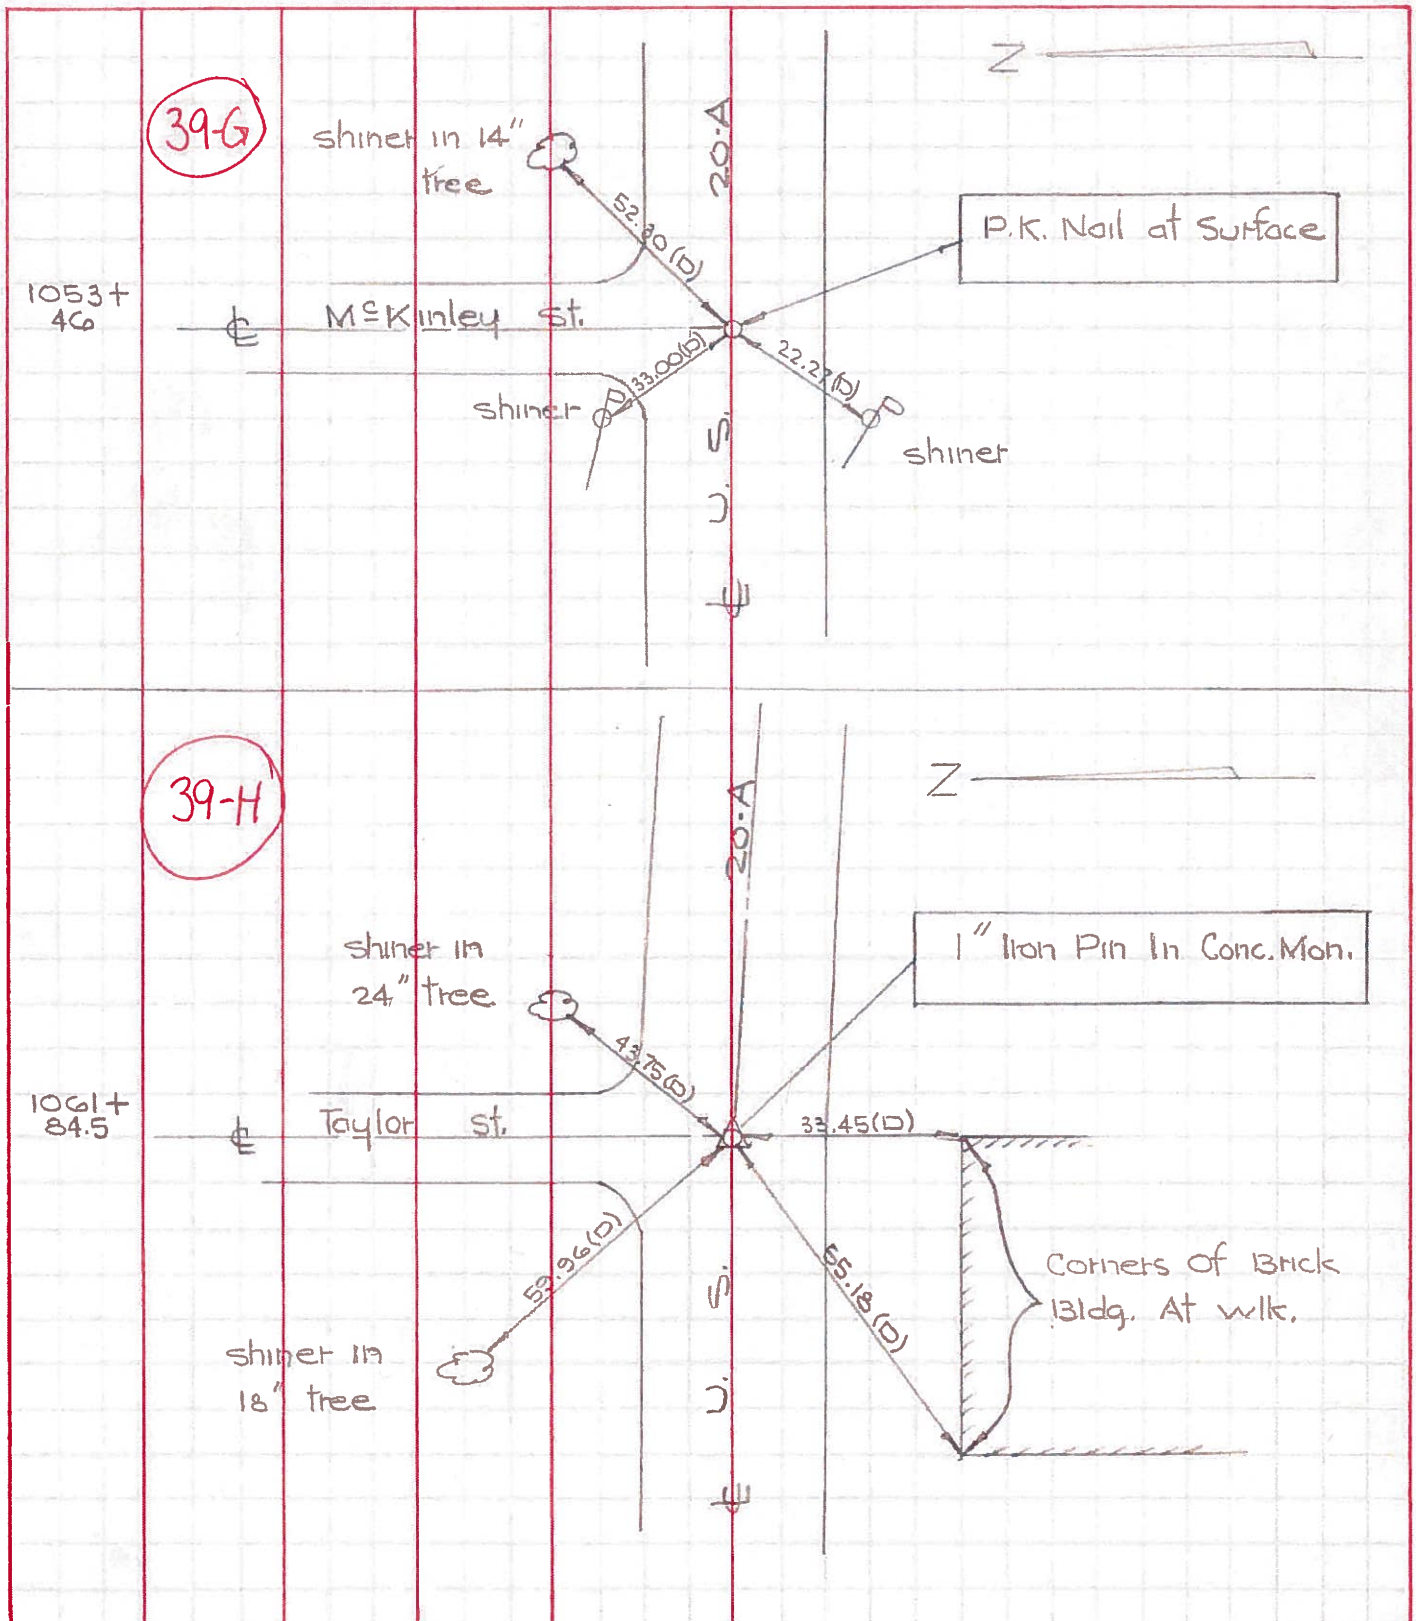 39-G
shiner in 14"
tree
20-A
Z
52.30 (D)
P.K. Nail at Surface
1053+
46
℄ McKinley St.
33.00(D)
22.27(D)
shiner
shiner
℄ U. S.
39-H
20-A
Z
shiner in
24" tree
1" Iron Pin In Conc. Mon.
43.75(D)
1061+
84.5
℄ Taylor St.
33.45(D)
59.96(D)
55.18(D)
Corners Of Brick
Bldg. At wlk.
shiner in
18" tree
℄ U. S.